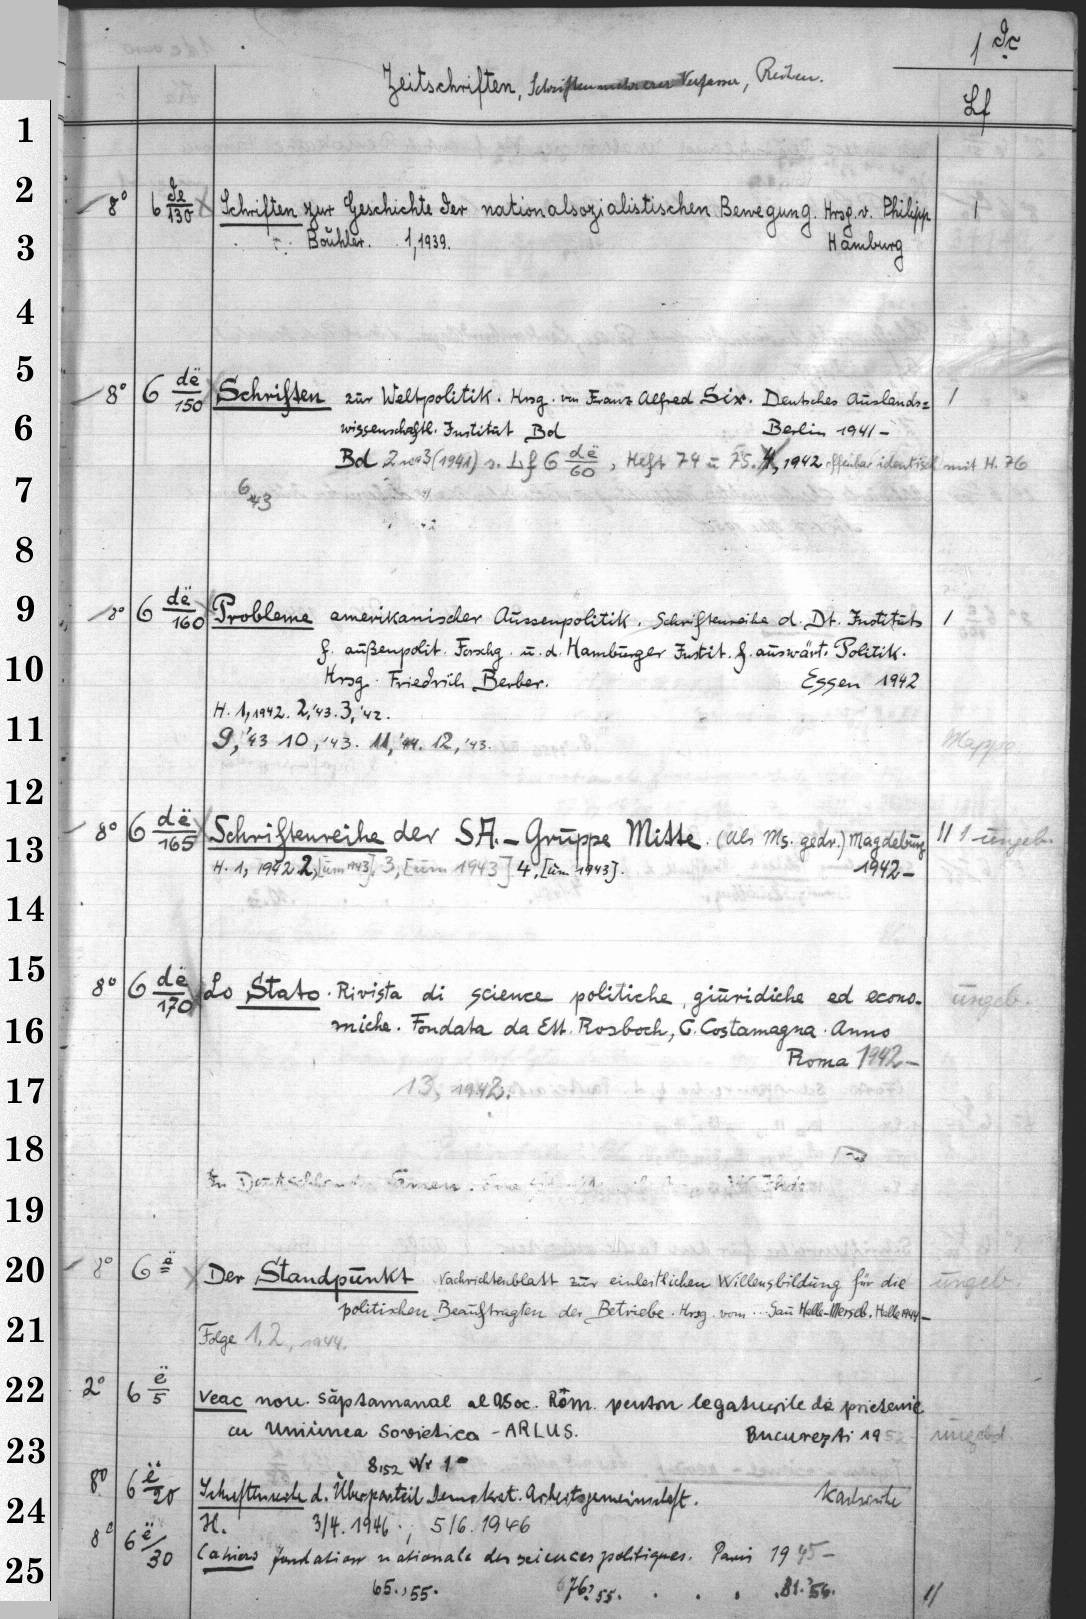 1 dc
Zeitschriften, Schriften mehrerer Verfasser, Reihen.
Lf
1
2
8° 6 de/130 Schriften zur Geschichte der nationalsozialistischen Bewegung. Hrsg. v. Philipp 1
3
Bouhler. 1,1939. Hamburg
4
5
8° 6 dë/150 Schriften zur Weltpolitik. Hrsg. von Franz Alfred Six. Deutsches Auslands= 1
6
wissenschaftl. Institut Bd Berlin 1941-
Bd 2 3(1941) s. Lf 6 dë/60, Heft 74 u 75. 4, 1942 offenbar identisch mit H. 76
7
6/43
8
9
8° 6 dë/160 Probleme amerikanischer Aussenpolitik. Schriftenreihe d. Dt. Instituts 1
f. außenpolit. Forschg. u. d. Hamburger Instit. f. auswärt. Politik.
10
Hrsg. Friedrich Berber. Essen 1942
H. 1, 1942. 2,'43. 3,'42.
11
9,'43 10,'43. 11,'44. 12,'43. Mappe
12
8° 6 dë/165 Schriftenreihe der SA.-Gruppe Mitte. (Als Ms. gedr.) Magdeburg 11 1 ungeb.
13
H. 1, 1942. 2, [um 1943]. 3, [um 1943] 4, [um 1943]. 1942-
14
15
8° 6 dë/170 Lo Stato. Rivista di science politiche, giuridiche ed econo- ungeb.
16
miche. Fondata da Ett. Rosboch, C. Costamagna. Anno
Roma 1942-
17
13, 1942.
18
19
20
8° 6 ë Der Standpunkt Nachrichtenblatt zur einheitlichen Willensbildung für die ungeb.
politischen Beauftragten der Betriebe. Hrsg. vom ... Gau Halle-Merseb. Halle 1944-
21
Folge 1.2, 1944.
22
2° 6 ë/5 Veac nou. Săptamanal al Asoc. Rôm. pentru legaturile de prietenie
cu Uniunea Sovietica - ARLUS. Bucurezti 1952- ungebd
23
8,52 Nr 1
8° 6 ë/20 Schriftenreihe d. Überparteil. Demokrat. Arbeitsgemeinschaft. Karlsruhe
24
H. 3/4. 1946., 5/6. 1946
8° 6 ë/30 Cahiers fondation nationale des sciences politiques. Paris 1945-
25
65.,55. 676?,55. . . . 81.'56. 11